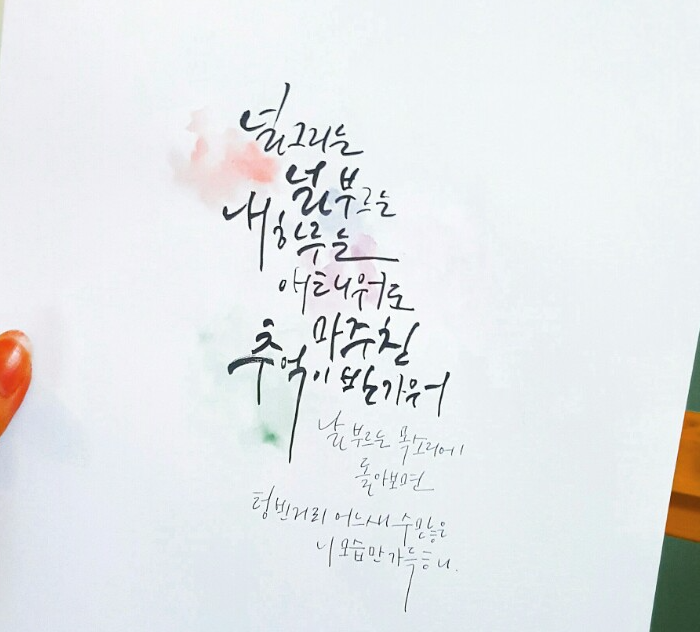 널 그리는
널 부르는
내 하루는
애태워도
마주친
추억이 반가워
날 부르는 목소리에
돌아보면
텅 빈 거리 어느새 수많은
니 모습만 가득해